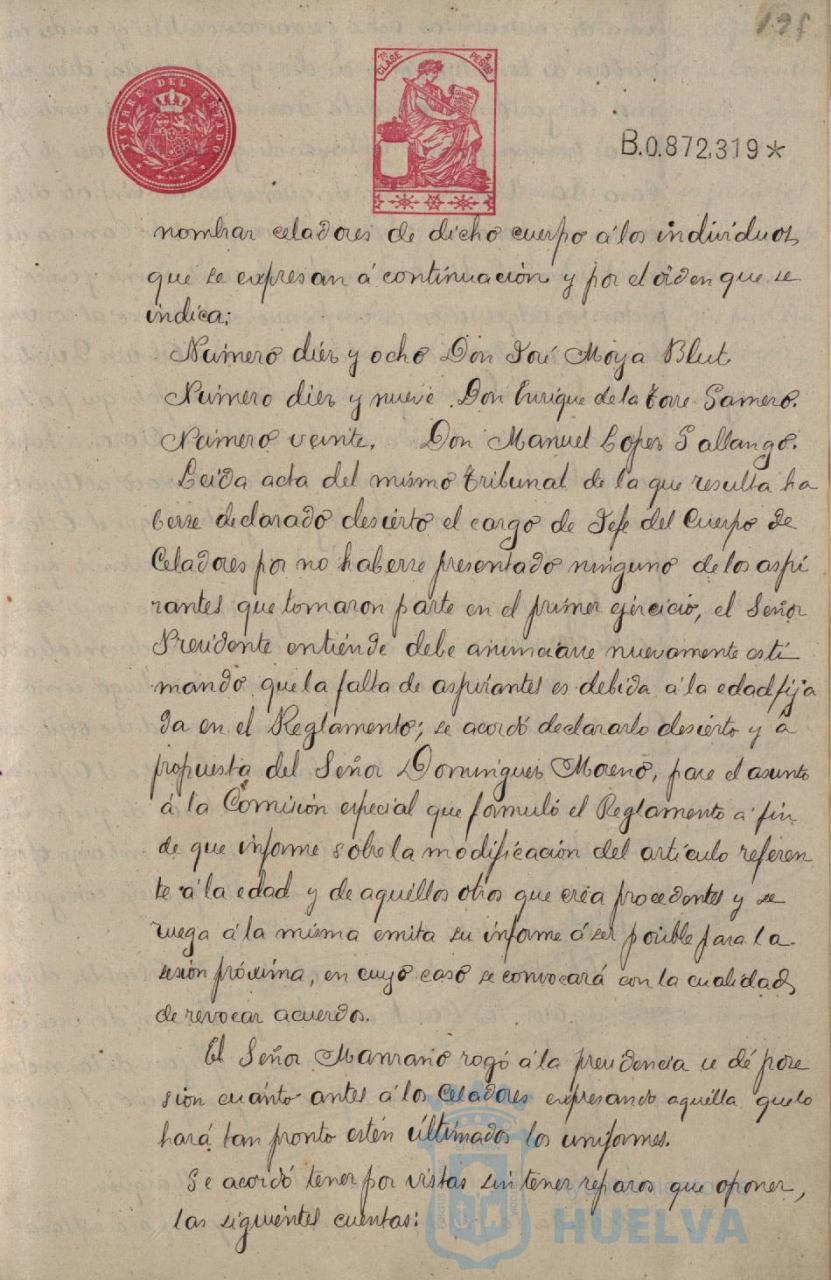 195
TIMBRE DEL ESTADO
7ª CLASE
PESETAS
B.0.872,319*
nombrar celadores de dicho cuerpo á los individuos
que se expresan á continuación y por el orden que se
indica:
Número diez y ocho Don José Moya Blut
Número diez y nueve. Don Enrique de la Torre Gamero.
Número veinte. Don Manuel Lopez Gallango.
Leida acta del mismo tribunal de la que resulta ha
berse declarado desierto el cargo de Jefe del Cuerpo de
Celadores por no haberse presentado ninguno de los aspi
rantes que tomaron parte en el primer ejercicio, el Señor
Presidente entiende debe anunciarse nuevamente esti
mando que la falta de aspirantes es debida á la edad fija
da en el Reglamento; se acordó declararlo desierto y á
propuesta del Señor Dominguez Moreno, pase el asunto
á la Comisión especial que formuló el Reglamento á fin
de que informe sobre la modificación del artículo referen
te á la edad y de aquellos otros que crea procedentes y se
ruega á la misma emita su informe á ser posible para la
sesión próxima, en cuyo caso se convocará con la cualidad
de revocar acuerdo.
El Señor Manzano rogó á la presidencia se dé pose
sión cuánto antes á los Celadores expresando aquélla que lo
hará tan pronto estén últimados los uniformes.
Se acordó tener por vistas sin tener reparos que oponer,
las siguientes cuentas:
Ayuntamiento de
HUELVA